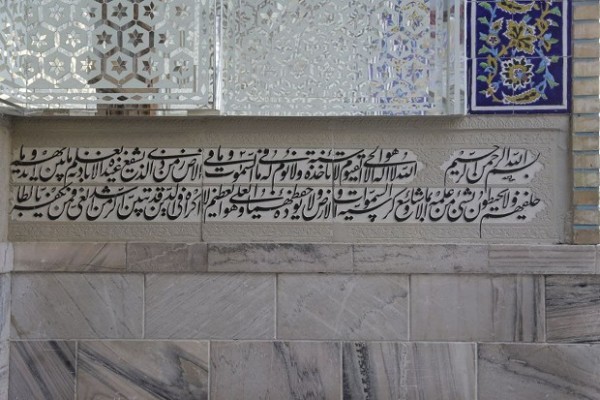 بسم الله الرحمن الرحیم الله لا اله الا هو الحی القیوم لا تاخذه سنة ولا نوم له ما فی السموات و ما فی الارض من ذی الذی یشفع عنده الا باذنه یعلم ما بین ایدیهم و ما
خلفهم ولا یحیطون بشیء من علمه الا بما شاء وسع کرسیه السموات و الارض ولا یؤده حفظهما و هو العلی العظیم لا اکراه فی الدین قد تبین الرشد من الغی فمن یکفر بالطا